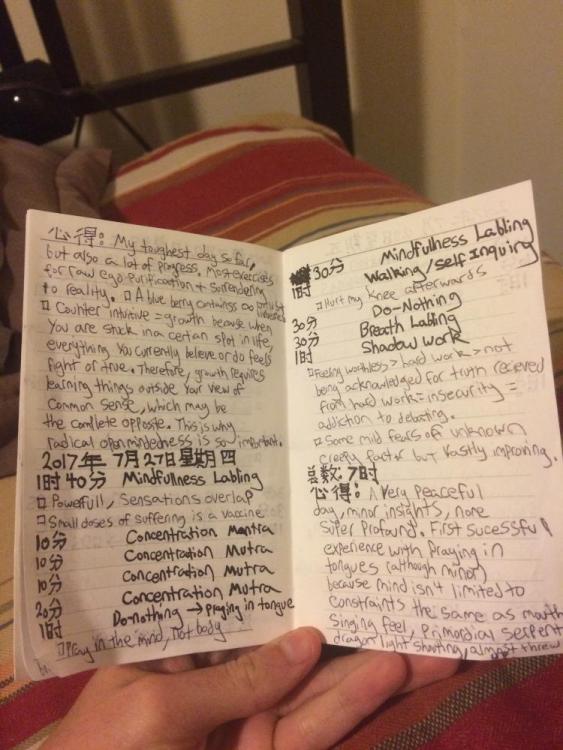 心得: My toughest day so far,
but also a lot of progress. Most exercises
for raw ego purification + surrendering
to reality. □ A blue berry containss ∞
□ Counter intuitive = growth because when
you are stuck in a certan spot in life,
everything you currently believe or do feels
right or true. Therefore, growth requires
learning things outside your view of
common sense, which may be
the complete opposite. This is why
radical openmindedness is so important.
2017年 7月27日星期四
1时40分 Mindfullness Labling
□ Powerfull, Sensations overlap
□ Small doses of suffering is a vaccine
10分 Concentration Mantra
10分 Concentration Mutra
10分 Concentration Mutra
10分 Concentration Mutra
20分 Do-nothing → praying in tongue
1时
□ Pray in the mind, not body
30分 Mindfullness Labling
1时 Walking/Self Inquiry
□ Hurt my knee afterwards
30分 Do-Nothing
30分 Breath Labling
1时 Shadow work
□ Feeling worthless > hard work > not
being acknowledged for truth recieved
from hard work = insecurity =
addiction to debating.
□ Some mild fears of unknown
creepy factor but vastly improving.
总数 7时
心得: A very peaceful
day, minor insights, none
super profound. First sucessful
experience with praying in
tongues (although minor)
because mind isn't limited to
constraints the same as mouth
singing feel, primordial serpent
dragon light shooting, almost threw